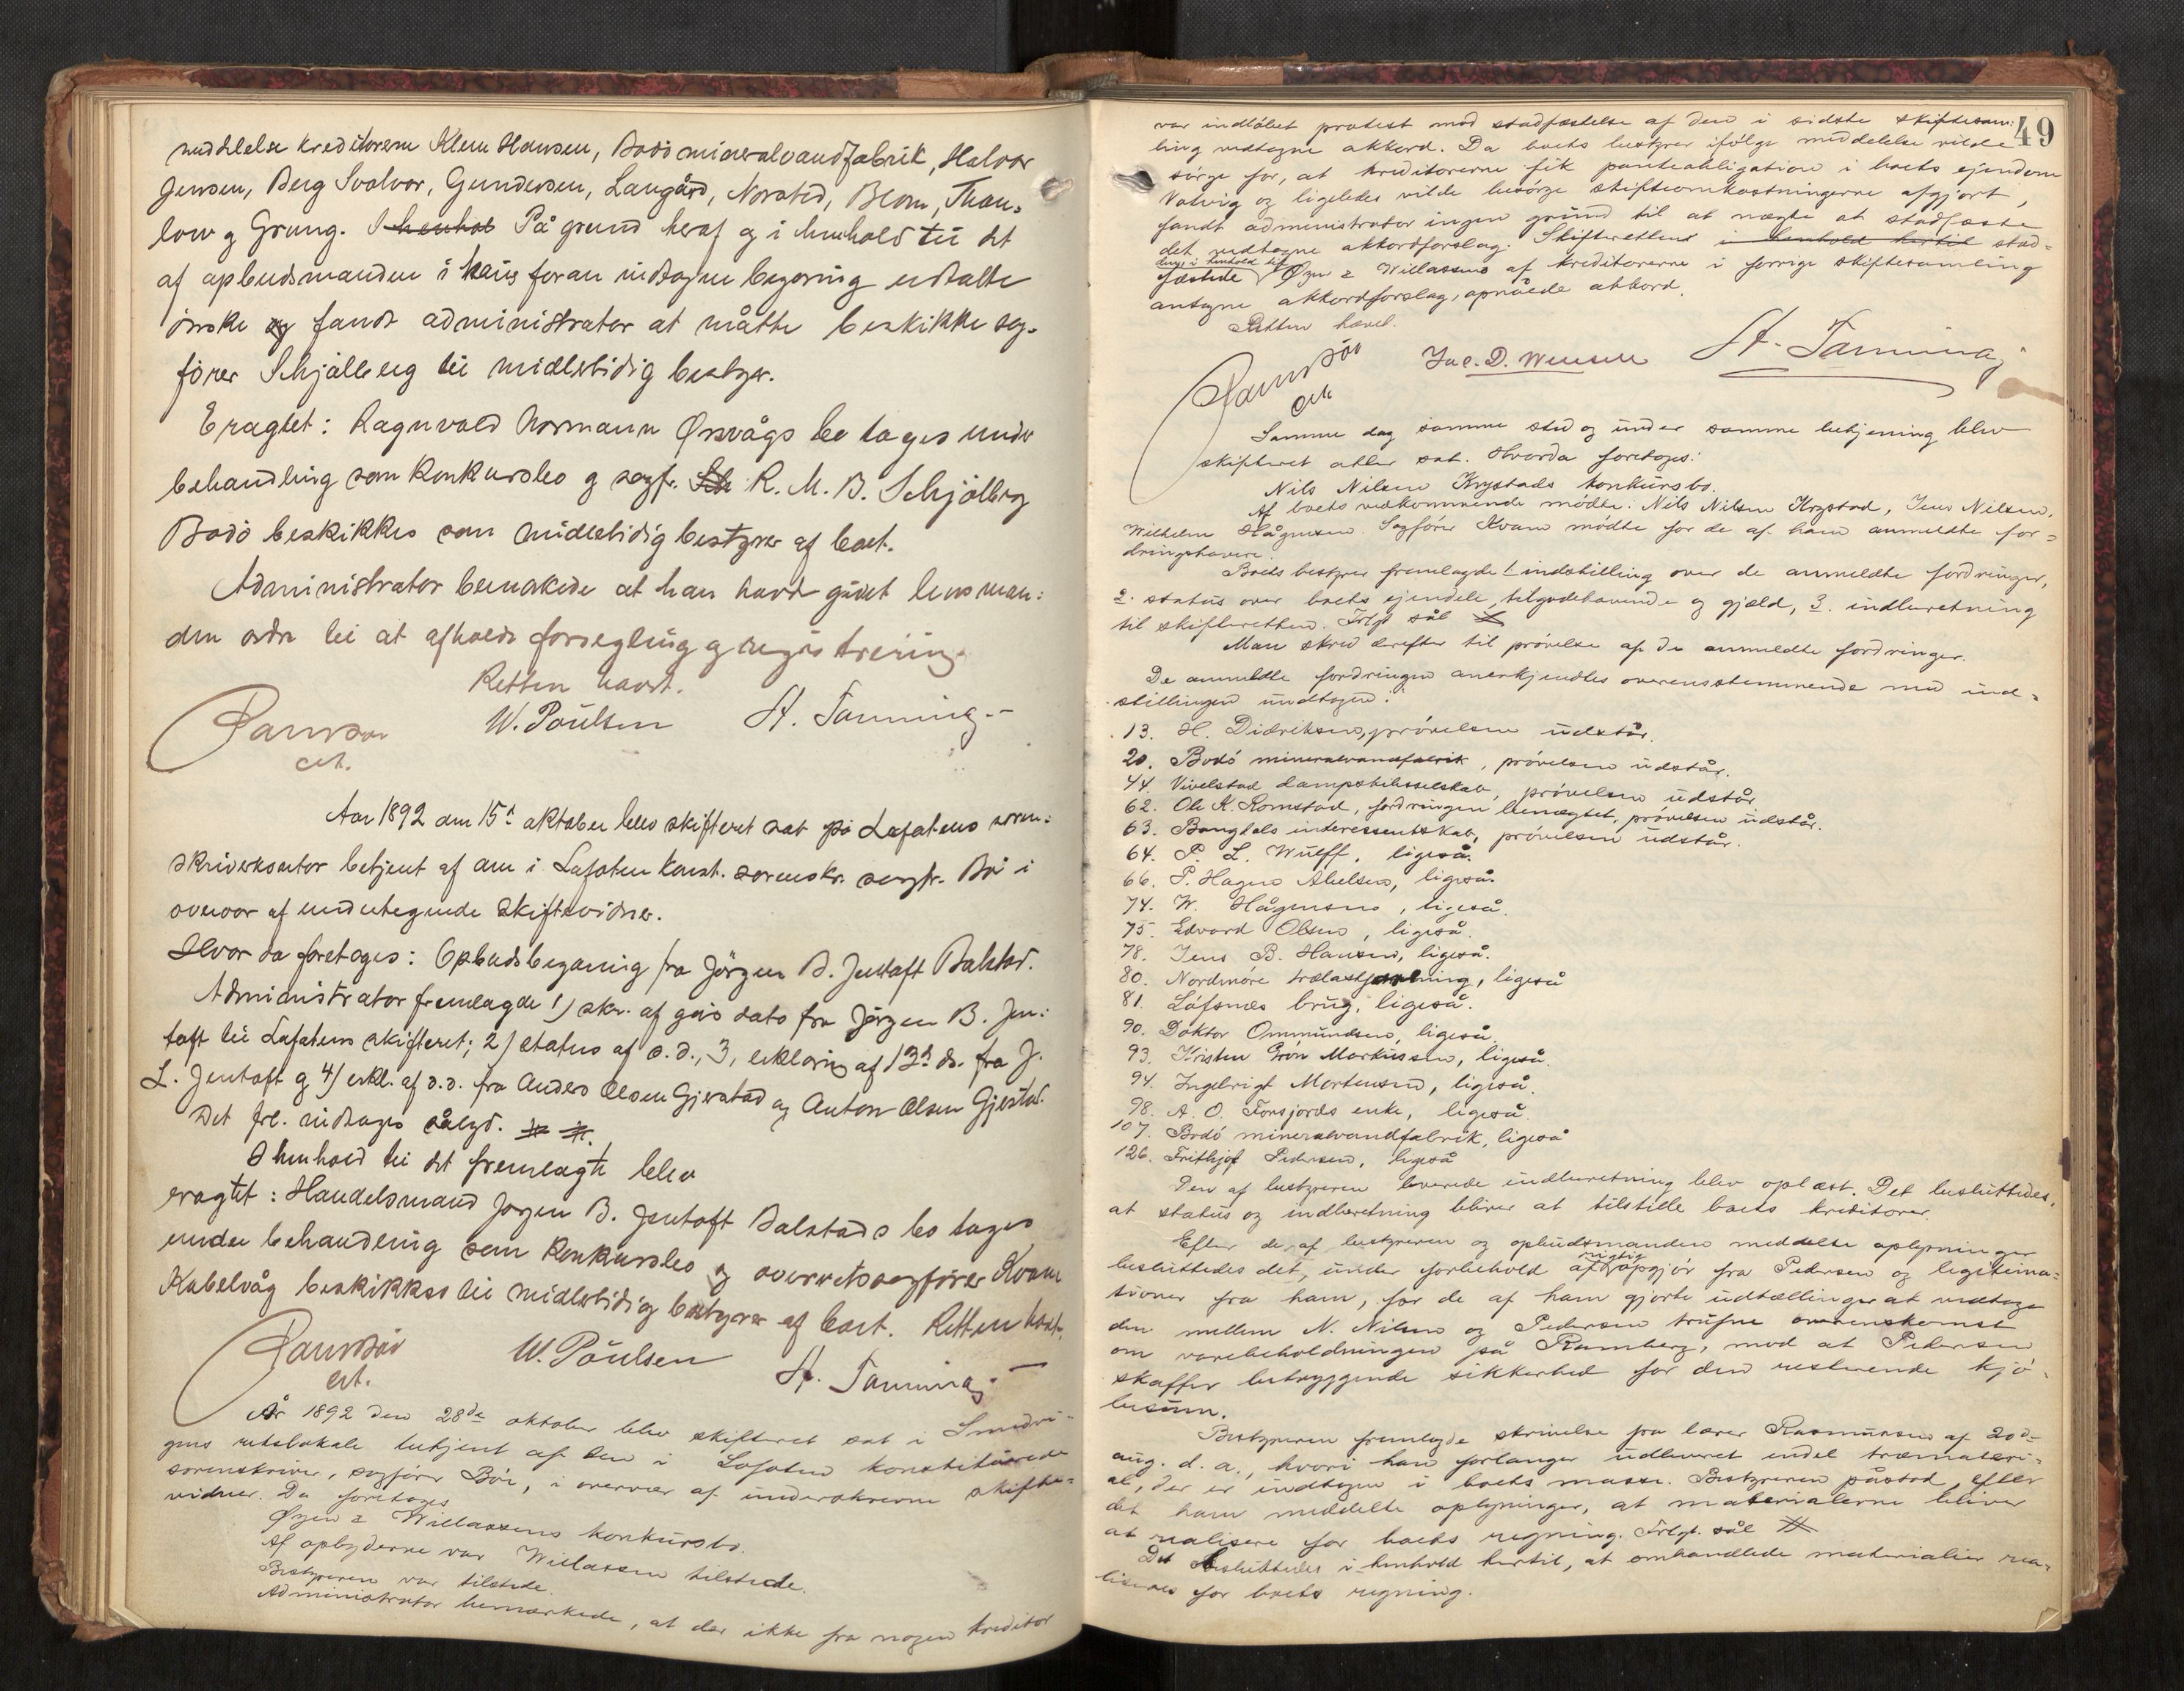 meddelelse kreditorerne Klem Hansen, Bodö mineralvandfabrik, Halvor
Jensen, Berg Svolvær, Gundersen, Langård, Norsted, Blom, Thau-
low og Grung. I henhol På grund heraf og i henhold til det
af opbudsmanden i hans foran indtagne begjæring udtalte
önske og fandt administrator at måtte beskikke sag-
förer Schjölberg til midlertidig bestyrer.
Eragtet: Ragnvald Normann Örsvågs bo tages under
behandling som konkursbo og sagf. Sch R. M. B. Schjölberg
Bodö beskikkes som midlertidig bestyrer af boet.
Administrator bemærkede at han havde givet lensman-
den ordre til at afholde forsegling og registrering.
Retten hævet.
W. Poulsen H. Tanning.
cst.
Aar 1892 den 15de oktober blev skifteret sat på Lofotens soren-
skriverkontor betjent af den i Lofoten konst. sorenskr. sagfr. Bör i
overvær af undertegnede skiftevidner.
Hvor da foretoges: Opbudsbegjæring fra Jörgen B. Jentoft Balstad.
Administrator fremlagde 1) skr. af gårs dato fra Jörgen B. Jen-
toft til Lofotens skifteret; 2) status af s. d., 3, erklæring af 13de ds. fra J.
L. Jentoft og 4) erkl. af s.d. fra Anders Olsen Gjerstad og Anton Olsen Gjerstad.
Det frl. indtages sålyd.
I henhold til det fremlagte blev
eragtet: Handelsmand Jörgen B. Jentoft Balstads bo tages
under behandling som konkursbo og overretssagförer Kvam
Kabelvåg beskikkes til midlertidig bestyrer af boet. Retten hævet.
cst. W. Poulsen H. Tanning
År 1892 den 28de oktober blev skifteret sat i Smedvi-
gens retslokale betjent af den i Lofoten konstituerede
sorenskriver, sagförer Bör, i overvær af underskrevne skifte-
vidner. Da foretoges
Öyen & Willassens konkursbo.
Af opbyderne var Willassen tilstede.
Bestyreren var tilstede.
Administrator bemærkede, at der ikke fra nogen kreditor
49
var indlöbet protest mod stadfæstelse af den i sidste skiftesam-
ling vedtagne akkord. Da boets bestyrer ifölge meddelelse vilde
sörge for, at kreditorerne fik panteobligation i boets ejendom
Valvig og ligeledes vilde besörge skifteomkostningerne afgjort,
fandt administrator ingen grund til at nægte at stadfæste
det vedtagne akkordforslag. Skifteretten i henhold hertil stad-
fæstede Öyen & Willassens af kreditorerne i forrige skiftesamling
antagne akkordforslag, opnåede akkord.
Retten hævet.
cst. Jac. D. H. Tanning
Samme dag samme sted og under samme betjening blev
skifteret atter sat. Hvorda foretoges:
Nils Nilsen Krystads konkursbo.
Af boets vedkommende mödte: Nils Nilsen Krystad, Jens Nilsen,
Wilhelm Hågensen. Sagförer Kvam mödte for de af ham anmeldte for-
dringshavere.
Boets bestyrer fremlagde 1 indstilling over de anmeldte fordringer,
2. status over boets ejendele, tilgodehavende og gjæld, 3. indberetning
til skifteretten. Frlgt. sål
Man skred derefter til prövelse af de anmeldte fordringer.
De anmeldte fordringer anerkjendtes overensstemmende med ind-
stillingen undtagen:
13. H. Didriksen, prövelsen udstår.
20. Bodö mineralvandfabrik, prövelsen udstår.
44. Vivelstad dampskibsselskab, prövelsen udstår
62. Ole K. Romstad, fordringen benægtet, prövelsen udstår.
63. Bangdals interessentskab, prövelsen udstår.
64. P. L. Wulff, ligeså.
66. P. Hagen Abelsen, ligeså.
74. W. Hågensen, ligeså.
75. Edvard Olsen, ligeså.
78. Jens B. Hansen, ligeså.
80. Nordmöre trælastforretning, ligeså
81. Löfsnæs brug, ligeså.
90. Doktor Ommundsen, ligeså.
93. Kristen Grön Markussen, ligeså.
94. Ingebrigt Mortensen, ligeså.
98. A. O. Forsjords enke, ligeså.
107. Bodö mineralvandfabrik, ligeså
126. Frithjof Pedersen, ligeså
Den af bestyreren leverede indberetning blev oplæst. Det besluttedes,
at status og indberetning bliver at tilstille boets kreditorer.
Efter de af bestyreren og opbudsmanden meddelte oplysninger
besluttedes det, under forbehold af rigtig opgjör fra Pedersen og legitima-
tioner fra ham, for de af ham gjorte udtællinger at vedtage
den mellem N. Nilsen og Pedersen trufne overenskomst
om varebeholdningen på Ramberg, mod at Pedersen
skaffer betryggende sikkerhed for den resterende kjö-
besum.
Bestyreren fremlagde skrivelse fra lærer Rasmussen af 20de
aug. d. a., hvori han forlanger udleveret endel træmateri-
al, der er indtagen i boets masse. Bestyreren påstod, efter
det ham meddelte oplysninger, at materialerne bliver
at realisere for boets regning. Frlgt. sål
Det besluttedes i henhold hertil, at omhandlede materialier rea-
liseres for boets regning.